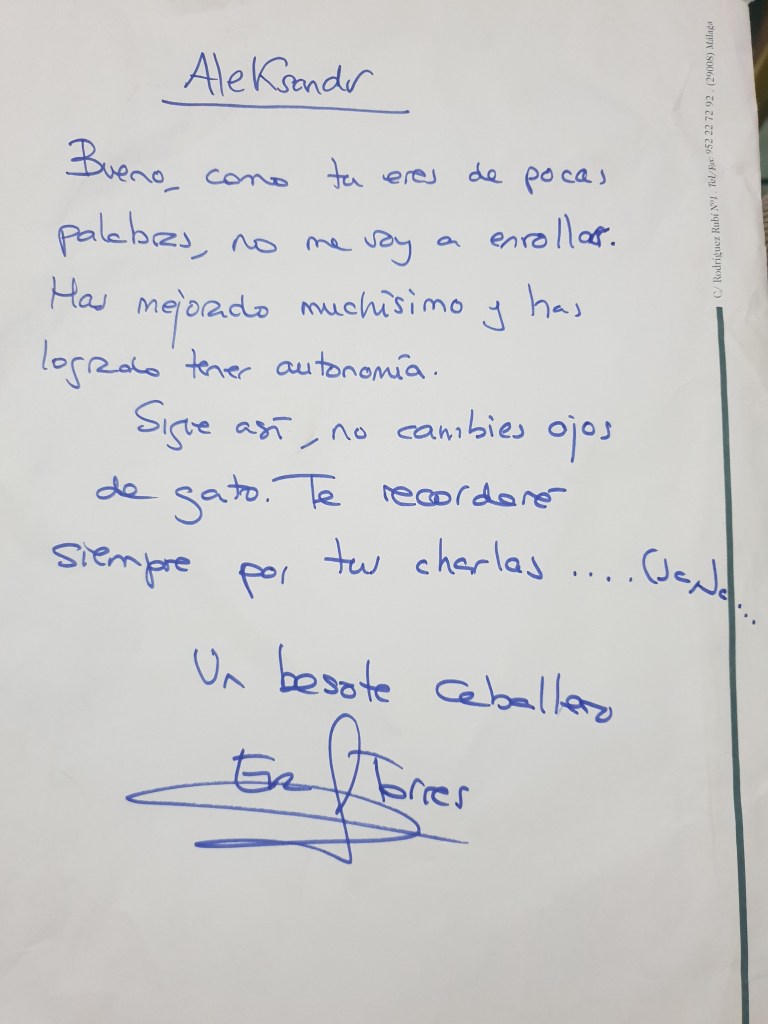 Aleksandr
Bueno, como tu eres de pocas
palabras, no me voy a enrollar.
Has mejorado muchísimo y has
logrado tener autonomía.
Sigue así, no cambies ojos
de gato. Te recordaré
siempre por tus charlas ....
Un besote caballero
Torres
C/ Rodríguez Rubí Nº1 . Tel./Fax 952 22 72 92 . (29008) Málaga